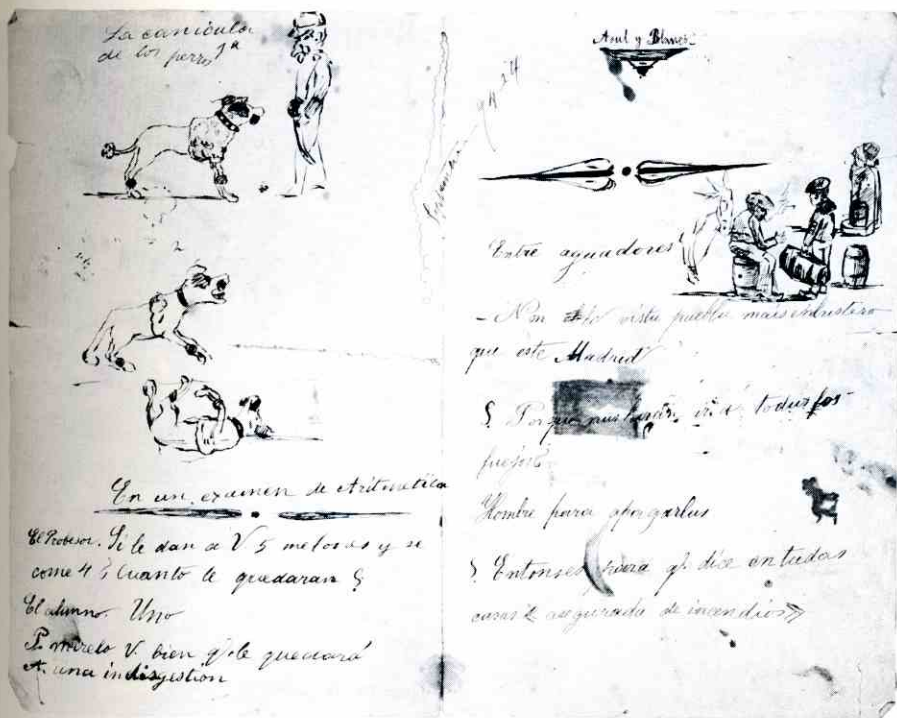 La canícula
de los perros
En un examen de Aritmetica
El Profesor. Si le dan a V. 5 melones y se
come 4 ¿ Cuanto le quedaran ?
El alumno. Uno
P. mirelo V. bien q. le quedará
A. una indigestion
Azul y Blanco
Entre aguadores
- Nin visto pueblu mais
que este Madrid
¿ Porqué todus los
fuejos
Hombre para apagarlus
¿ Entonses para q. dice en tudas
casas asegurada de incendios »